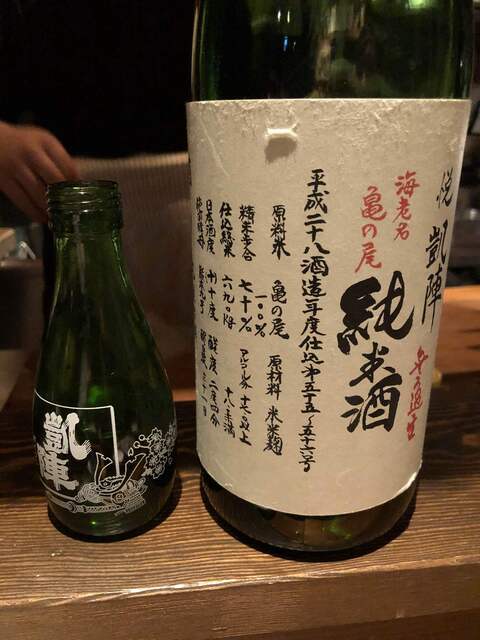 悦 凱陣
海老名
亀の尾
純米酒
むろ過生
平成二十八酒造年度仕込第五十五〜五十六号
原料米 亀の尾 一〇〇% 原材料 米米麹
精米歩合 七十% アルコール分 十七以上
十八未満
仕込総米 六九〇kg
日本酒度 十十度 酸度 二・四
凱陣